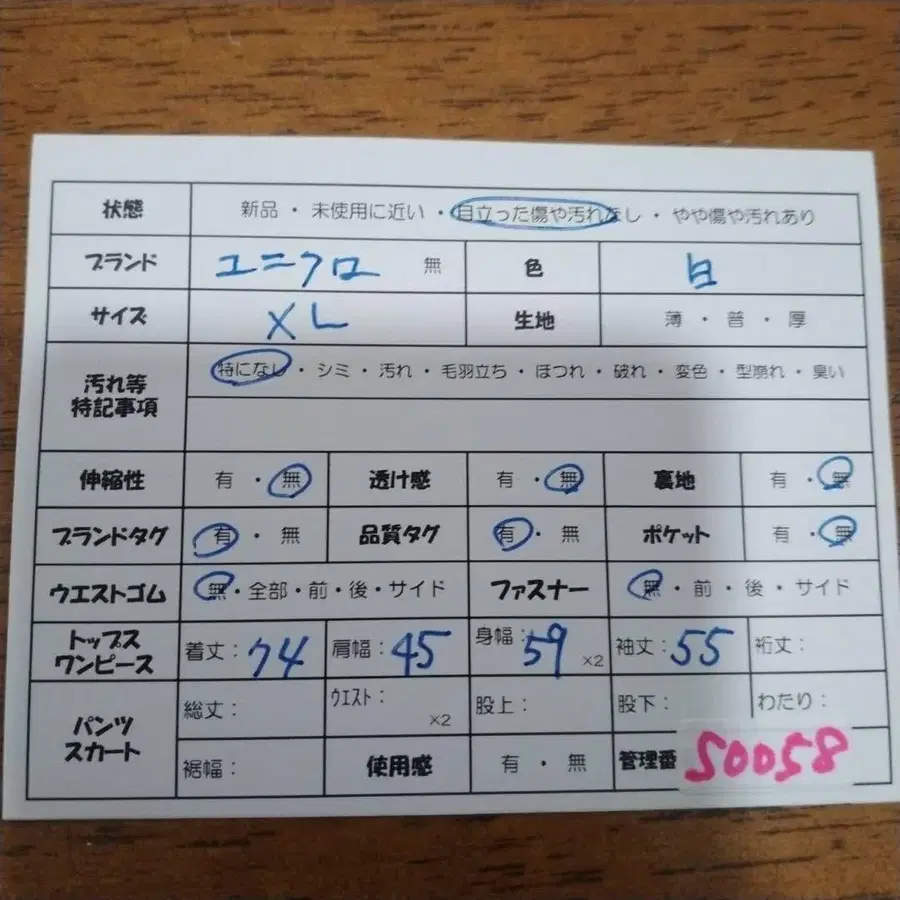 状態 新品・未使用に近い・目立った傷や汚れなし・やや傷や汚れあり
ブランド ユニクロ 無 色 白
サイズ XL 生地 薄・普・厚
汚れ等 特記事項 特になし・シミ・汚れ・毛羽立ち・ほつれ・破れ・変色・型崩れ・臭い
伸縮性 有・無 透け感 有・無 裏地 有・無
ブランドタグ 有・無 品質タグ 有・無 ポケット 有・無
ウエストゴム 無・全部・前・後・サイド ファスナー 無・前・後・サイド
トップス ワンピース 着丈:74 肩幅:45 身幅:59 ×2 袖丈:55 裄丈:
パンツ スカート 総丈: ウエスト: ×2 股上: 股下: わたり:
裾幅: 使用感 有・無 管理番 S0058